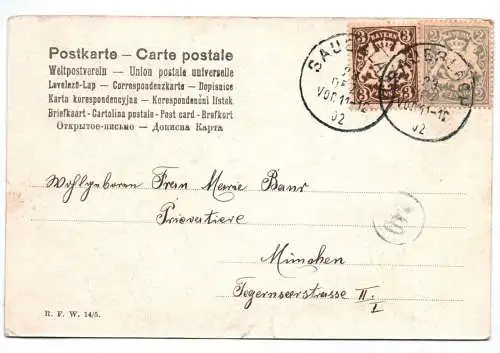 Postkarte – Carte postale
Weltpostverein – Union postale universelle
Levelező-Lap – Correspondenzkarte – Dopisnice
Karta korespondencyjna – Korespondenční lístek
Briefkaart – Cartolina postale – Post card – Brefkort
Открытое-письмо – Дописна Карта
3 BAYERN 3
2 2
SAUERLACH
VOR.11-12
02
SAUERLACH
VOR.11-12
02
Wohlgeboren Frau Marie Baur
Privatiere
München
Tegernseerstrasse II.
I
R. F. W. 14/5.